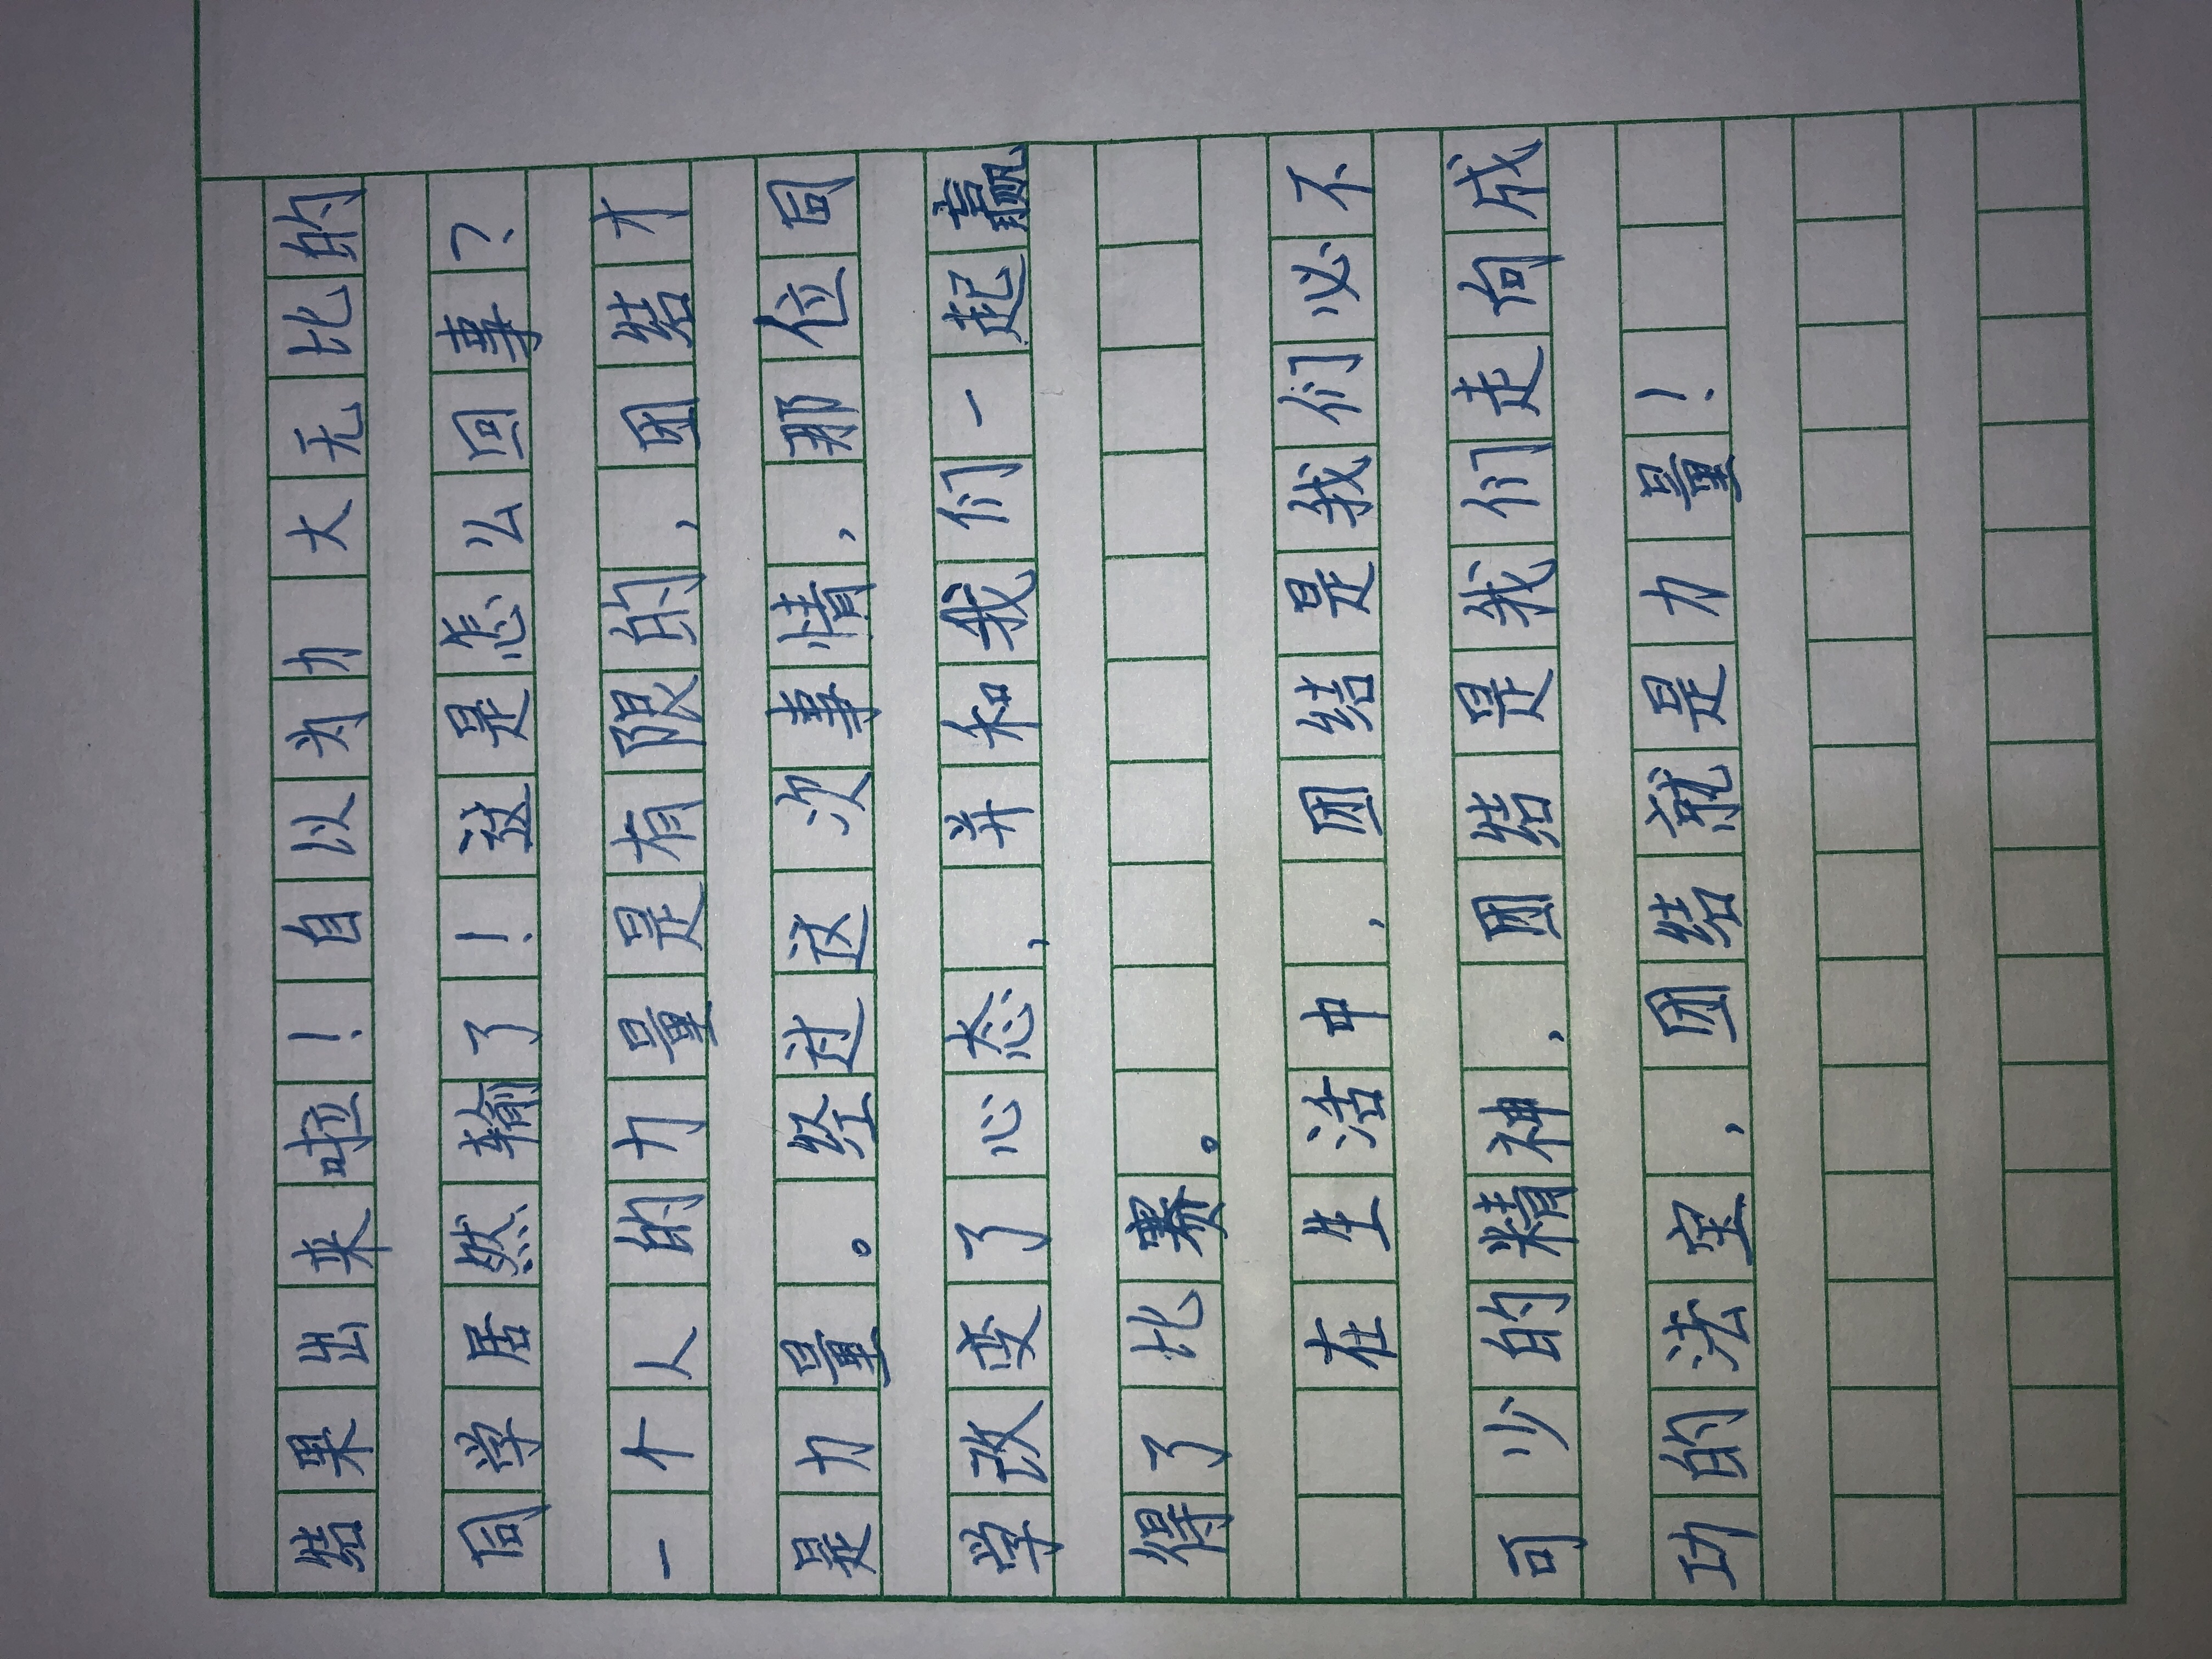 结果出来啦！自以为力大无比的
同学居然输了！这是怎么回事？
一个人的力量是有限的，团结才
是力量。经过这次事情，那位同
学改变了心态，并和我们一起赢
得了比赛。
在生活中，团结是我们必不
可少的精神，团结是我们走向成
功的法宝，团结就是力量！